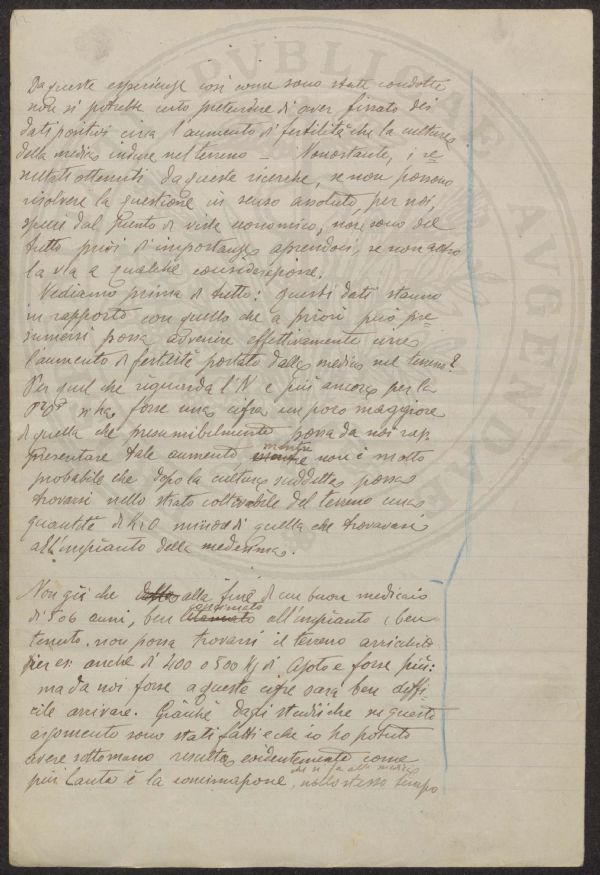 Da queste esperienze così come sono state condotte
non si potrebbe certo pretendere di aver fissato dei
dati positivi circa l'aumento di fertilità che la cultura
della medica induce nel terreno - Nonostante, i re=
sultati ottenuti da queste ricerche, se non possono
risolvere la questione in senso assoluto, per noi,
specie dal punto di vista economico, non sono del
tutto privi d'importanza aprendoci, se non altro
la via a qualche considerazione.
Vediamo prima di tutto: questi dati stanno
in rapporto con quello che a priori può pre=
sumersi possa avvenire effettivamente circa
l'aumento di fertilità portato dalla medica nel terreno?
Per quel che riguarda l'N e più ancora per la
si ha forse una cifra un poco maggiore
di quella che presumibilmente possa da noi rap=
presentare tale aumento mentre non è molto
probabile che dopo la cultura suddetta possa
trovarsi nello strato coltivabile del terreno una
quantità di K2O minore di quella che trovavasi
all'impianto della medesima.
Non già che alla fine di un buon medicaio
di 5 o 6 anni, ben concimato all'impianto e ben
tenuto, non possa trovarsi il terreno arricchito
per es: anche di 400 o 500 Kg di Azoto e forse più:
ma da noi forse a queste cifre sarà ben diffi=
cile arrivare. Giacchè dagli studi che su questo
argomento sono stati fatti e che io ho potuto
avere sottomano resulta evidentemente come
più lauta è la concimazione che si fa alla medica, nello stesso tempo
PVBLICAE